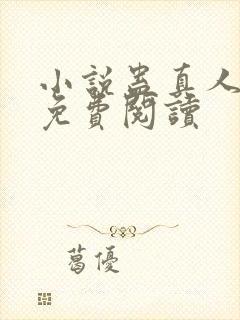 小說蠱真人
免費閱讀
葛優